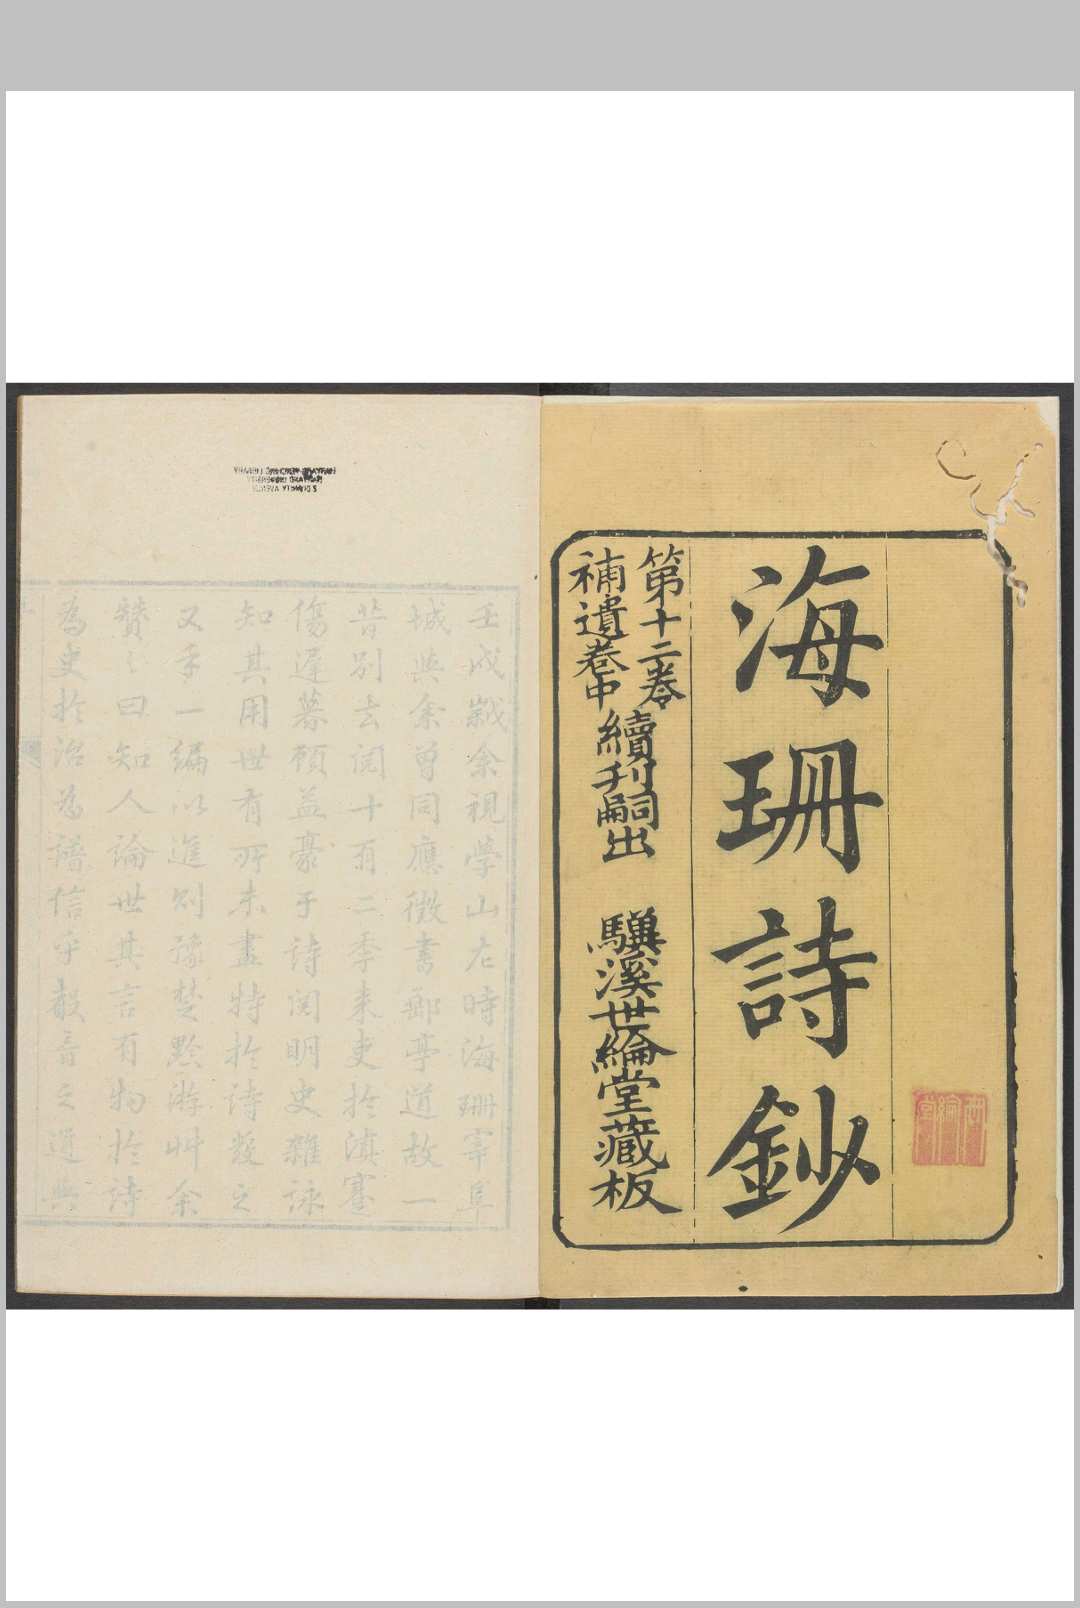 海珊詩鈔
第十二卷
補遺卷中
續刊嗣出
驥溪世綸堂藏板
世綸堂
壬戌嵗余視學山左時海珊宰阜
城與余曾同應徵書郵亭道故一
昔別去閱十有二季来吏於滇蹇
傷遲暮顧益豪于詩閱明史雜詠
知其用世有所未盡特於詩發之
又手一編以進則豫楚黔游艸余
贊之曰知人論世其言有物於詩
為史於治為譜信乎聲音之道與